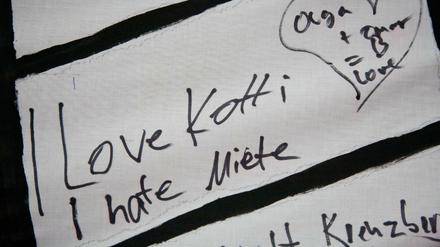 Olga
+
=
Love
I Love Kotti
I hate Miete
Kreuzber